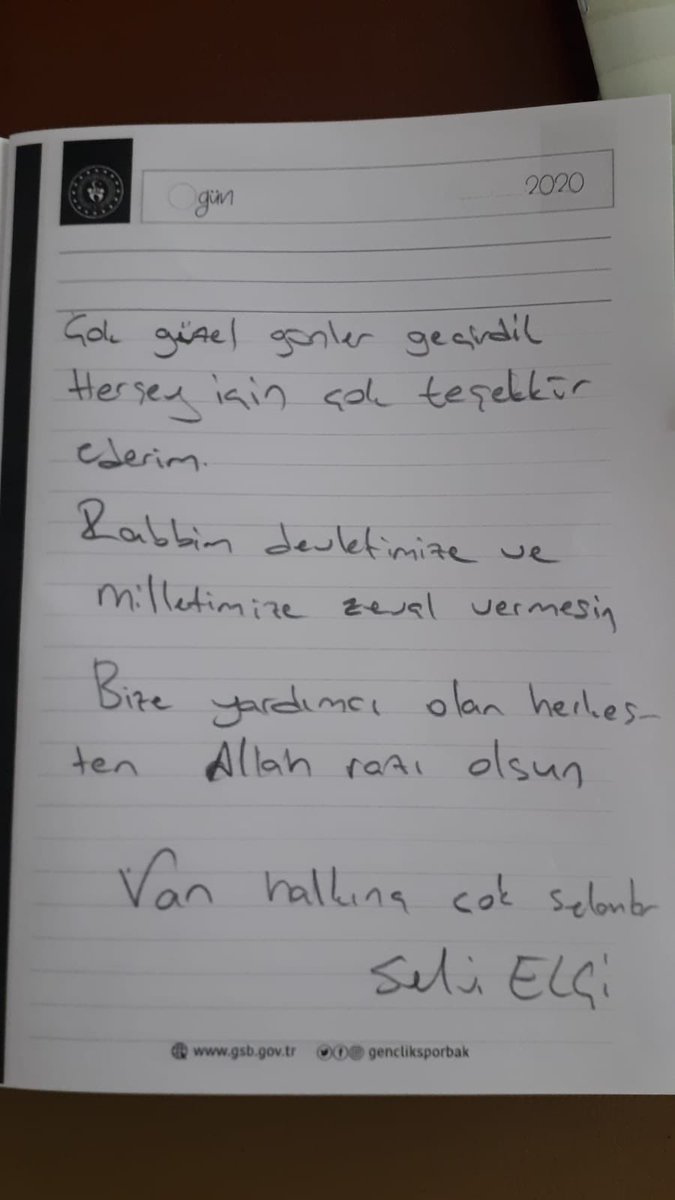 gün 2020
Çok güzel günler geçirdik
Herşey için çok teşekkür
ederim.
Rabbim devletimize ve
milletimize zeval vermesin
Bize yardımcı olan herkes-
ten Allah razı olsun
Van halkına çok selamlar
ELÇİ
www.gsb.gov.tr gencliksporbak